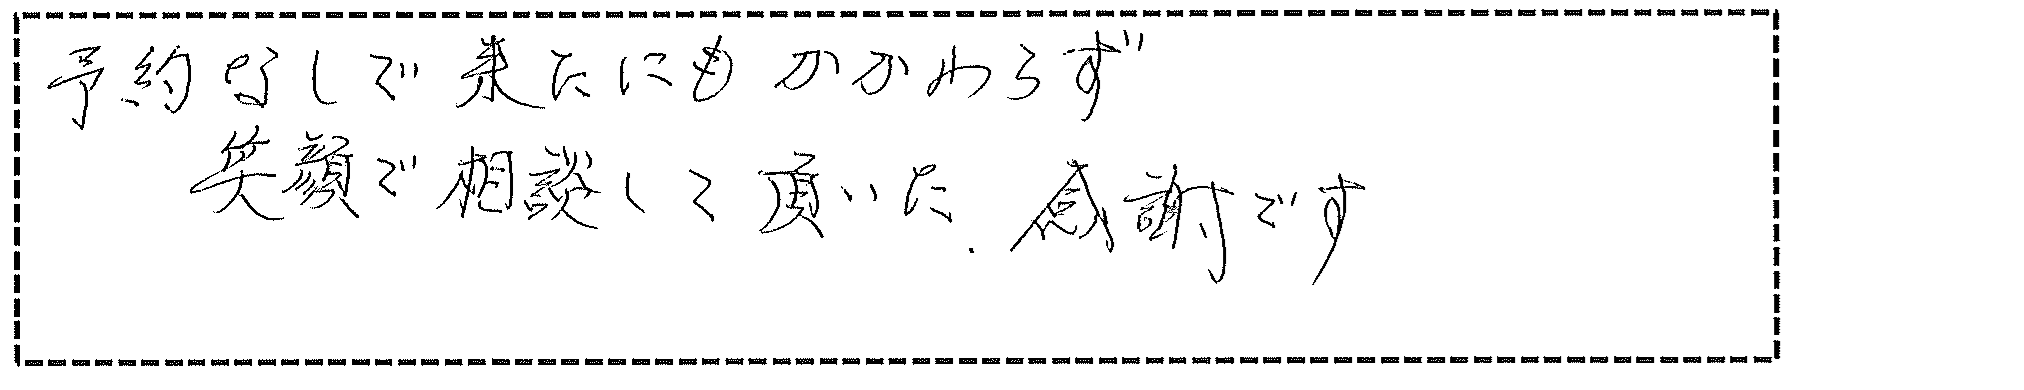 予約なしで来たにもかかわらず
笑顔で相談して頂いた. 感謝です